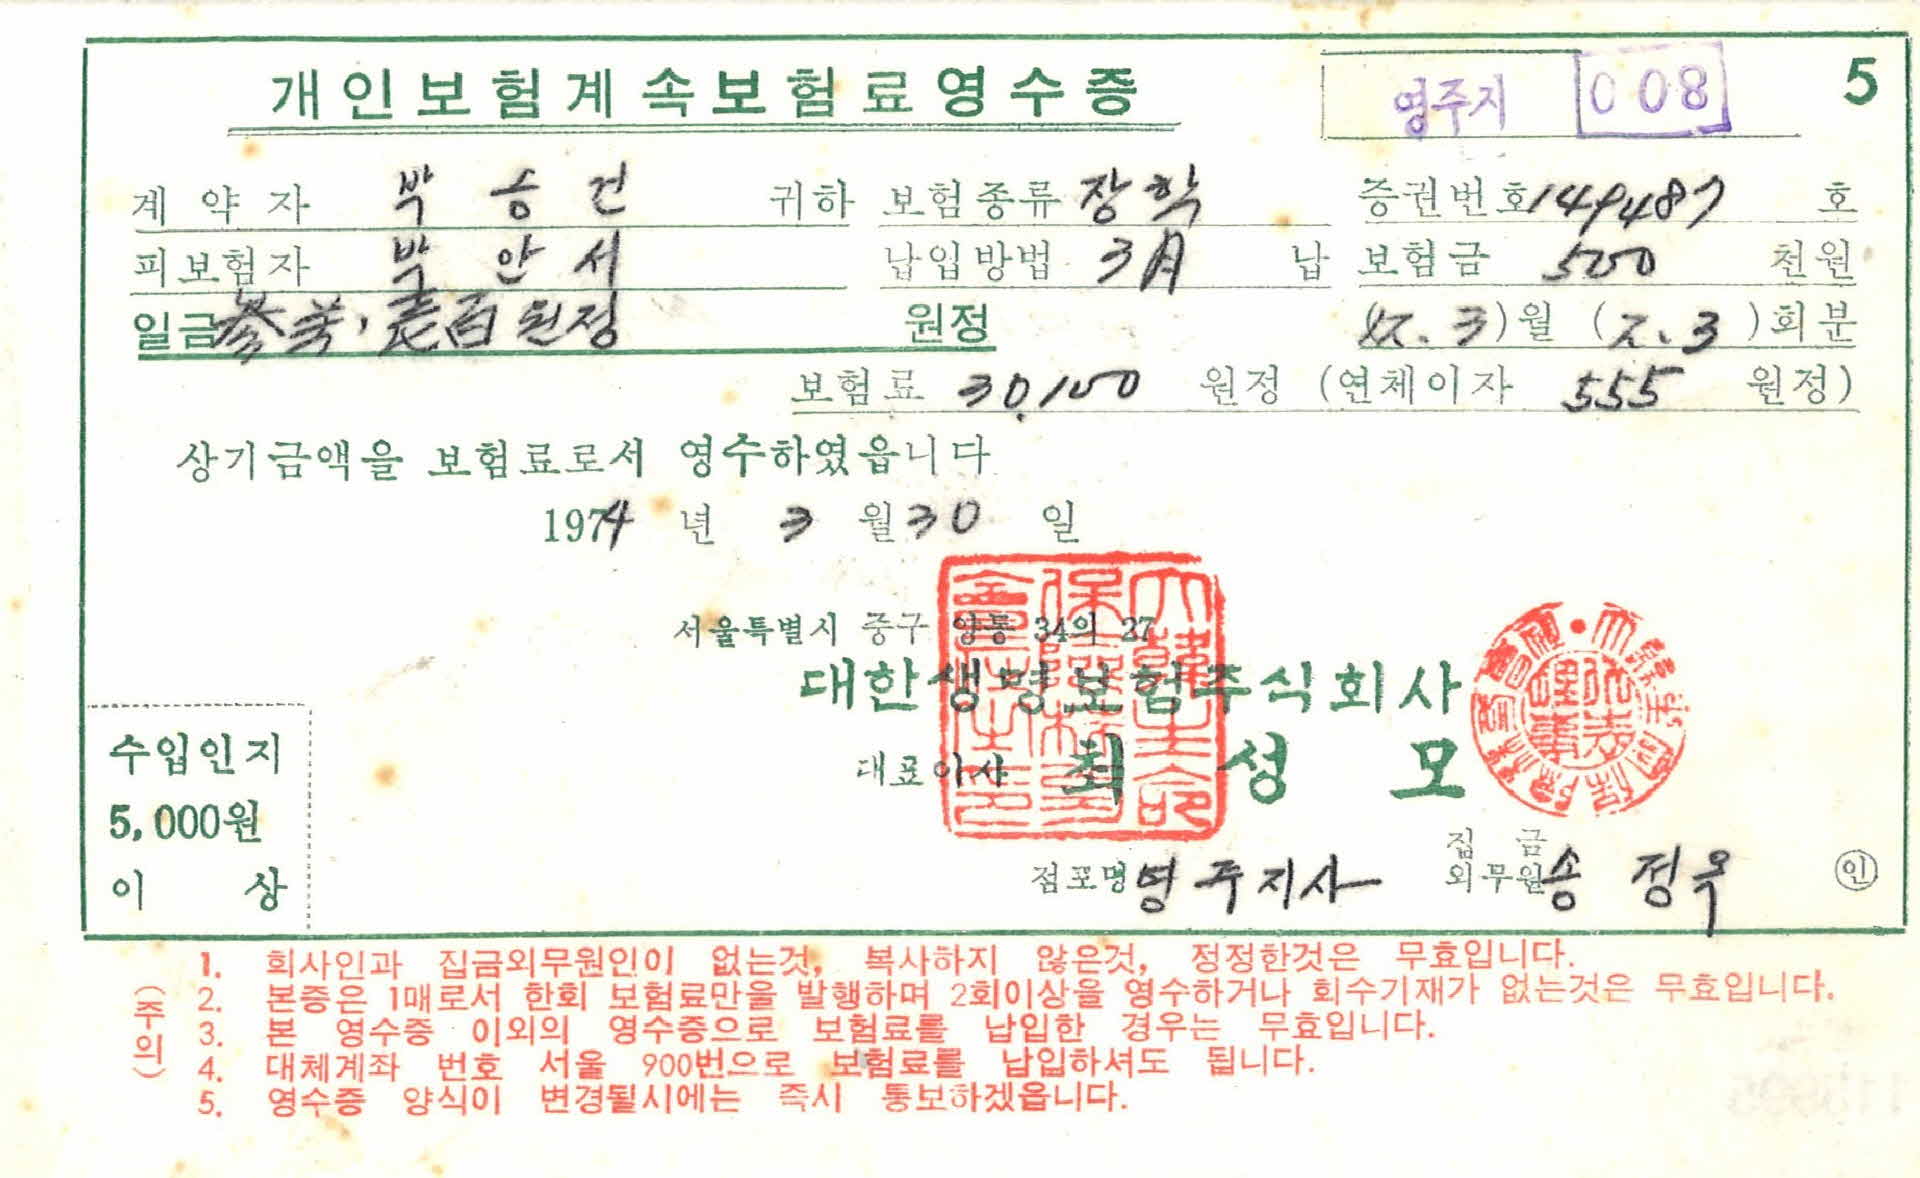 개인보험계속보험료영수증
영주지 008
5
계약자 박승건 귀하 보험종류 장학 증권번호 149487 호
피보험자 박안서 납입방법 3月 납 보험금 500 천원
일금 參萬,壱百원정 원정 ( . 3)월 ( . 3)회분
보험료 30,100 원정 (연체이자 555 원정)
상기금액을 보험료로서 영수하였읍니다
1974 년 3 월 30 일
서울특별시 중구 양동 34의 27
대한생명보험주식회사
대표이사 최성모
수입인지
5,000원
이 상
점포명 영주지사 집금외무원 송정옥 인
(주의)
1. 회사인과 집금외무원인이 없는것, 복사하지 않은것, 정정한것은 무효입니다.
2. 본증은 1매로서 한회 보험료만을 발행하며 2회이상을 영수하거나 회수기재가 없는것은 무효입니다.
3. 본 영수증 이외의 영수증으로 보험료를 납입한 경우는 무효입니다.
4. 대체계좌 번호 서울 900번으로 보험료를 납입하셔도 됩니다.
5. 영수증 양식이 변경될시에는 즉시 통보하겠읍니다.